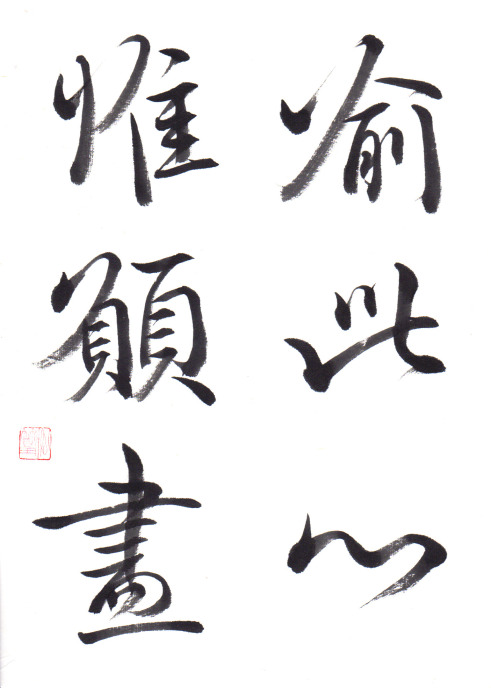 愉此心
惟願畫